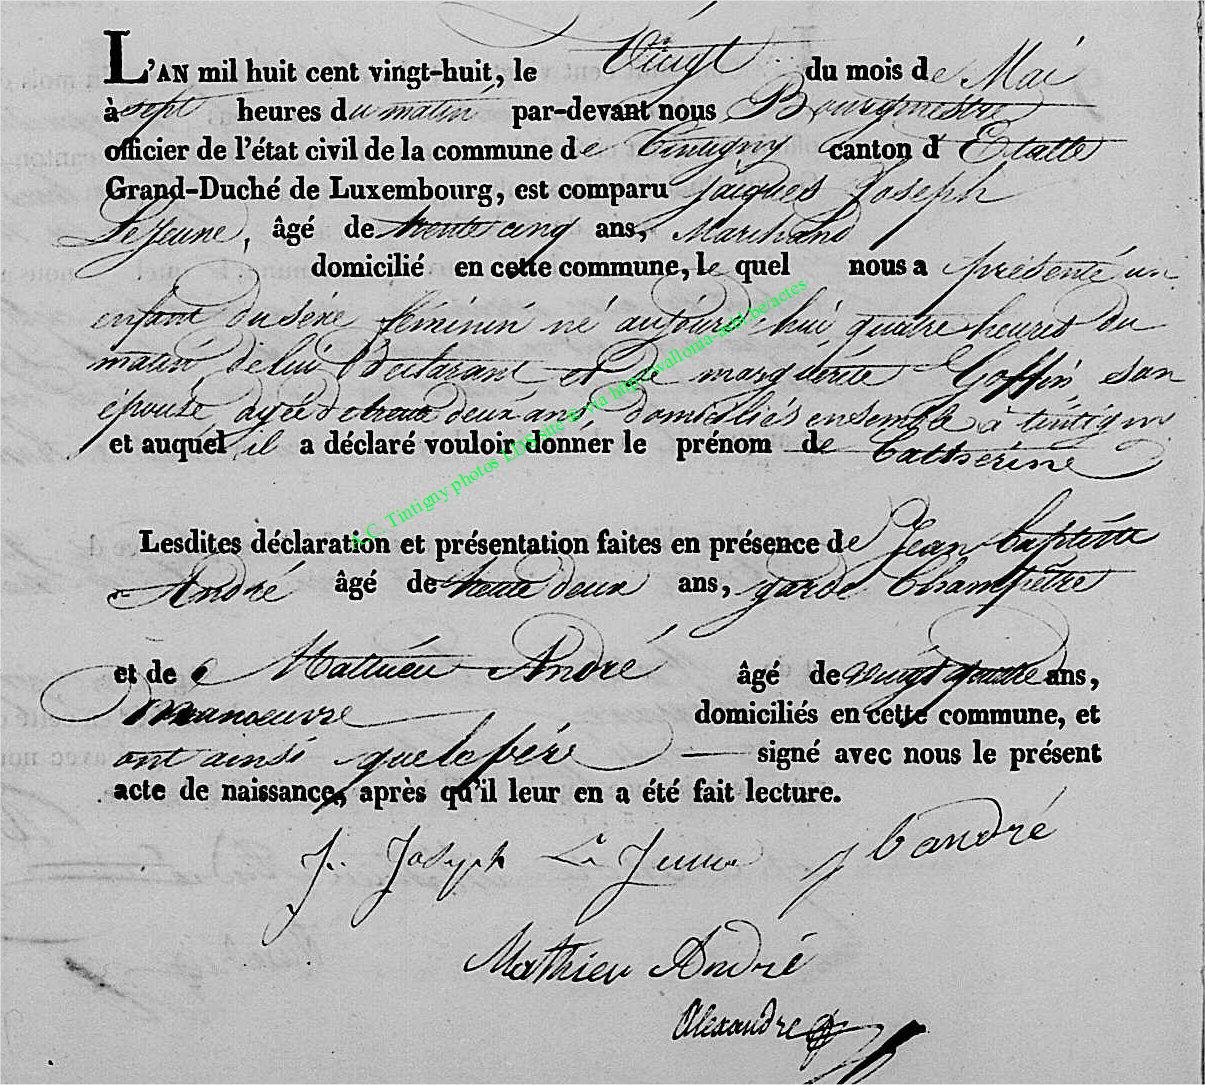 L'AN mil huit cent vingt-huit, le Vingt du mois de Mai
à sept heures du matin par-devant nous Bourgmestre
officier de l'état civil de la commune de Tintigny canton d'Etalle
Grand-Duché de Luxembourg, est comparu Jacques Joseph
LeJeune, âgé de trente cinq ans, Marchand
domicilié en cette commune, le quel nous a présenté un
enfant du séxe féminin né aujourd'hui quatre heures du
matin de lui Declarant et de marguerite Goffin son
épouse agée de trente deux ans domiciliés ensemble à tintigny
et auquel il a déclaré vouloir donner le prénom de Catherine
A.C. Tintigny photos LDS site & via http://wallonia-asbl.be/actes
Lesdites déclaration et présentation faites en présence de Jean baptiste
André âgé de trente deux ans, garde Champêtre
et de Mathieu André âgé de vingt quatre ans,
manoeuvre domiciliés en cette commune, et
ont ainsi que le père signé avec nous le présent
acte de naissance, après qu'il leur en a été fait lecture.
J. Joseph Le Jeune J b andré
Mathieu André
Alexandre